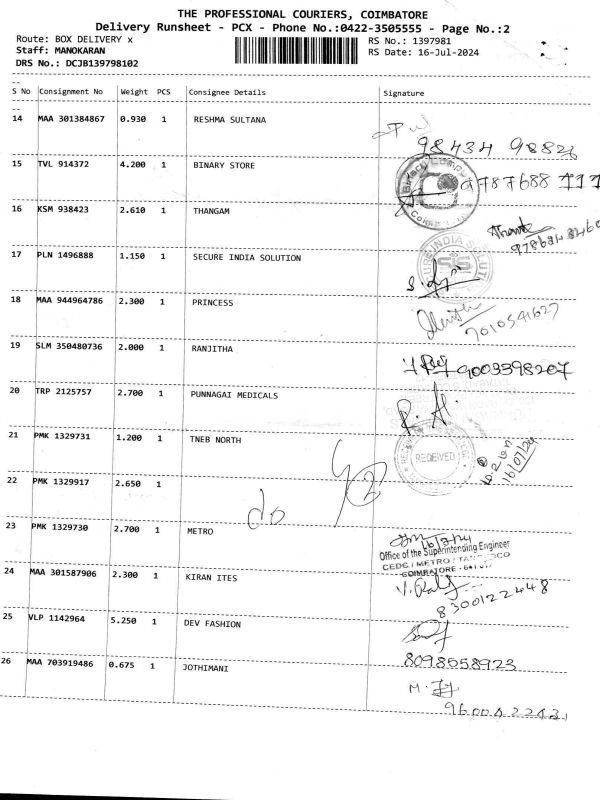 THE PROFESSIONAL COURIERS, COIMBATORE
Delivery Runsheet - PCX - Phone No.:0422-3505555 - Page No.:2
Route: BOX DELIVERY x
RS No.: 1397981
Staff: MANOKARAN
RS Date: 16-Jul-2024
DRS No.: DCJB139798102
S No Consignment No Weight PCS Consignee Details Signature
14 MAA 301384867 0.930 1 RESHMA SULTANA
98434 98826
15 TVL 914372 4.200 1 BINARY STORE
16 KSM 938423 2.610 1 THANGAM
17 PLN 1496888 1.150 1 SECURE INDIA SOLUTION
SIS
18 MAA 944964786 2.300 1 PRINCESS
7010541627
19 SLM 350480736 2.000 1 RANJITHA
9003398207
20 TRP 2125757 2.700 1 PUNNAGAI MEDICALS
21 PMK 1329731 1.200 1 TNEB NORTH
RECEIVED
16/07/24
22 PMK 1329917 2.650 1
do
23 PMK 1329730 2.700 1 METRO
16/7/24
Office of the Superintending Engineer
CEDC / METRO /
COIMBATORE -
24 MAA 301587906 2.300 1 KIRAN ITES
8300122448
25 VLP 1142964 5.250 1 DEV FASHION
8098558923
26 MAA 703919486 0.675 1 JOTHIMANI